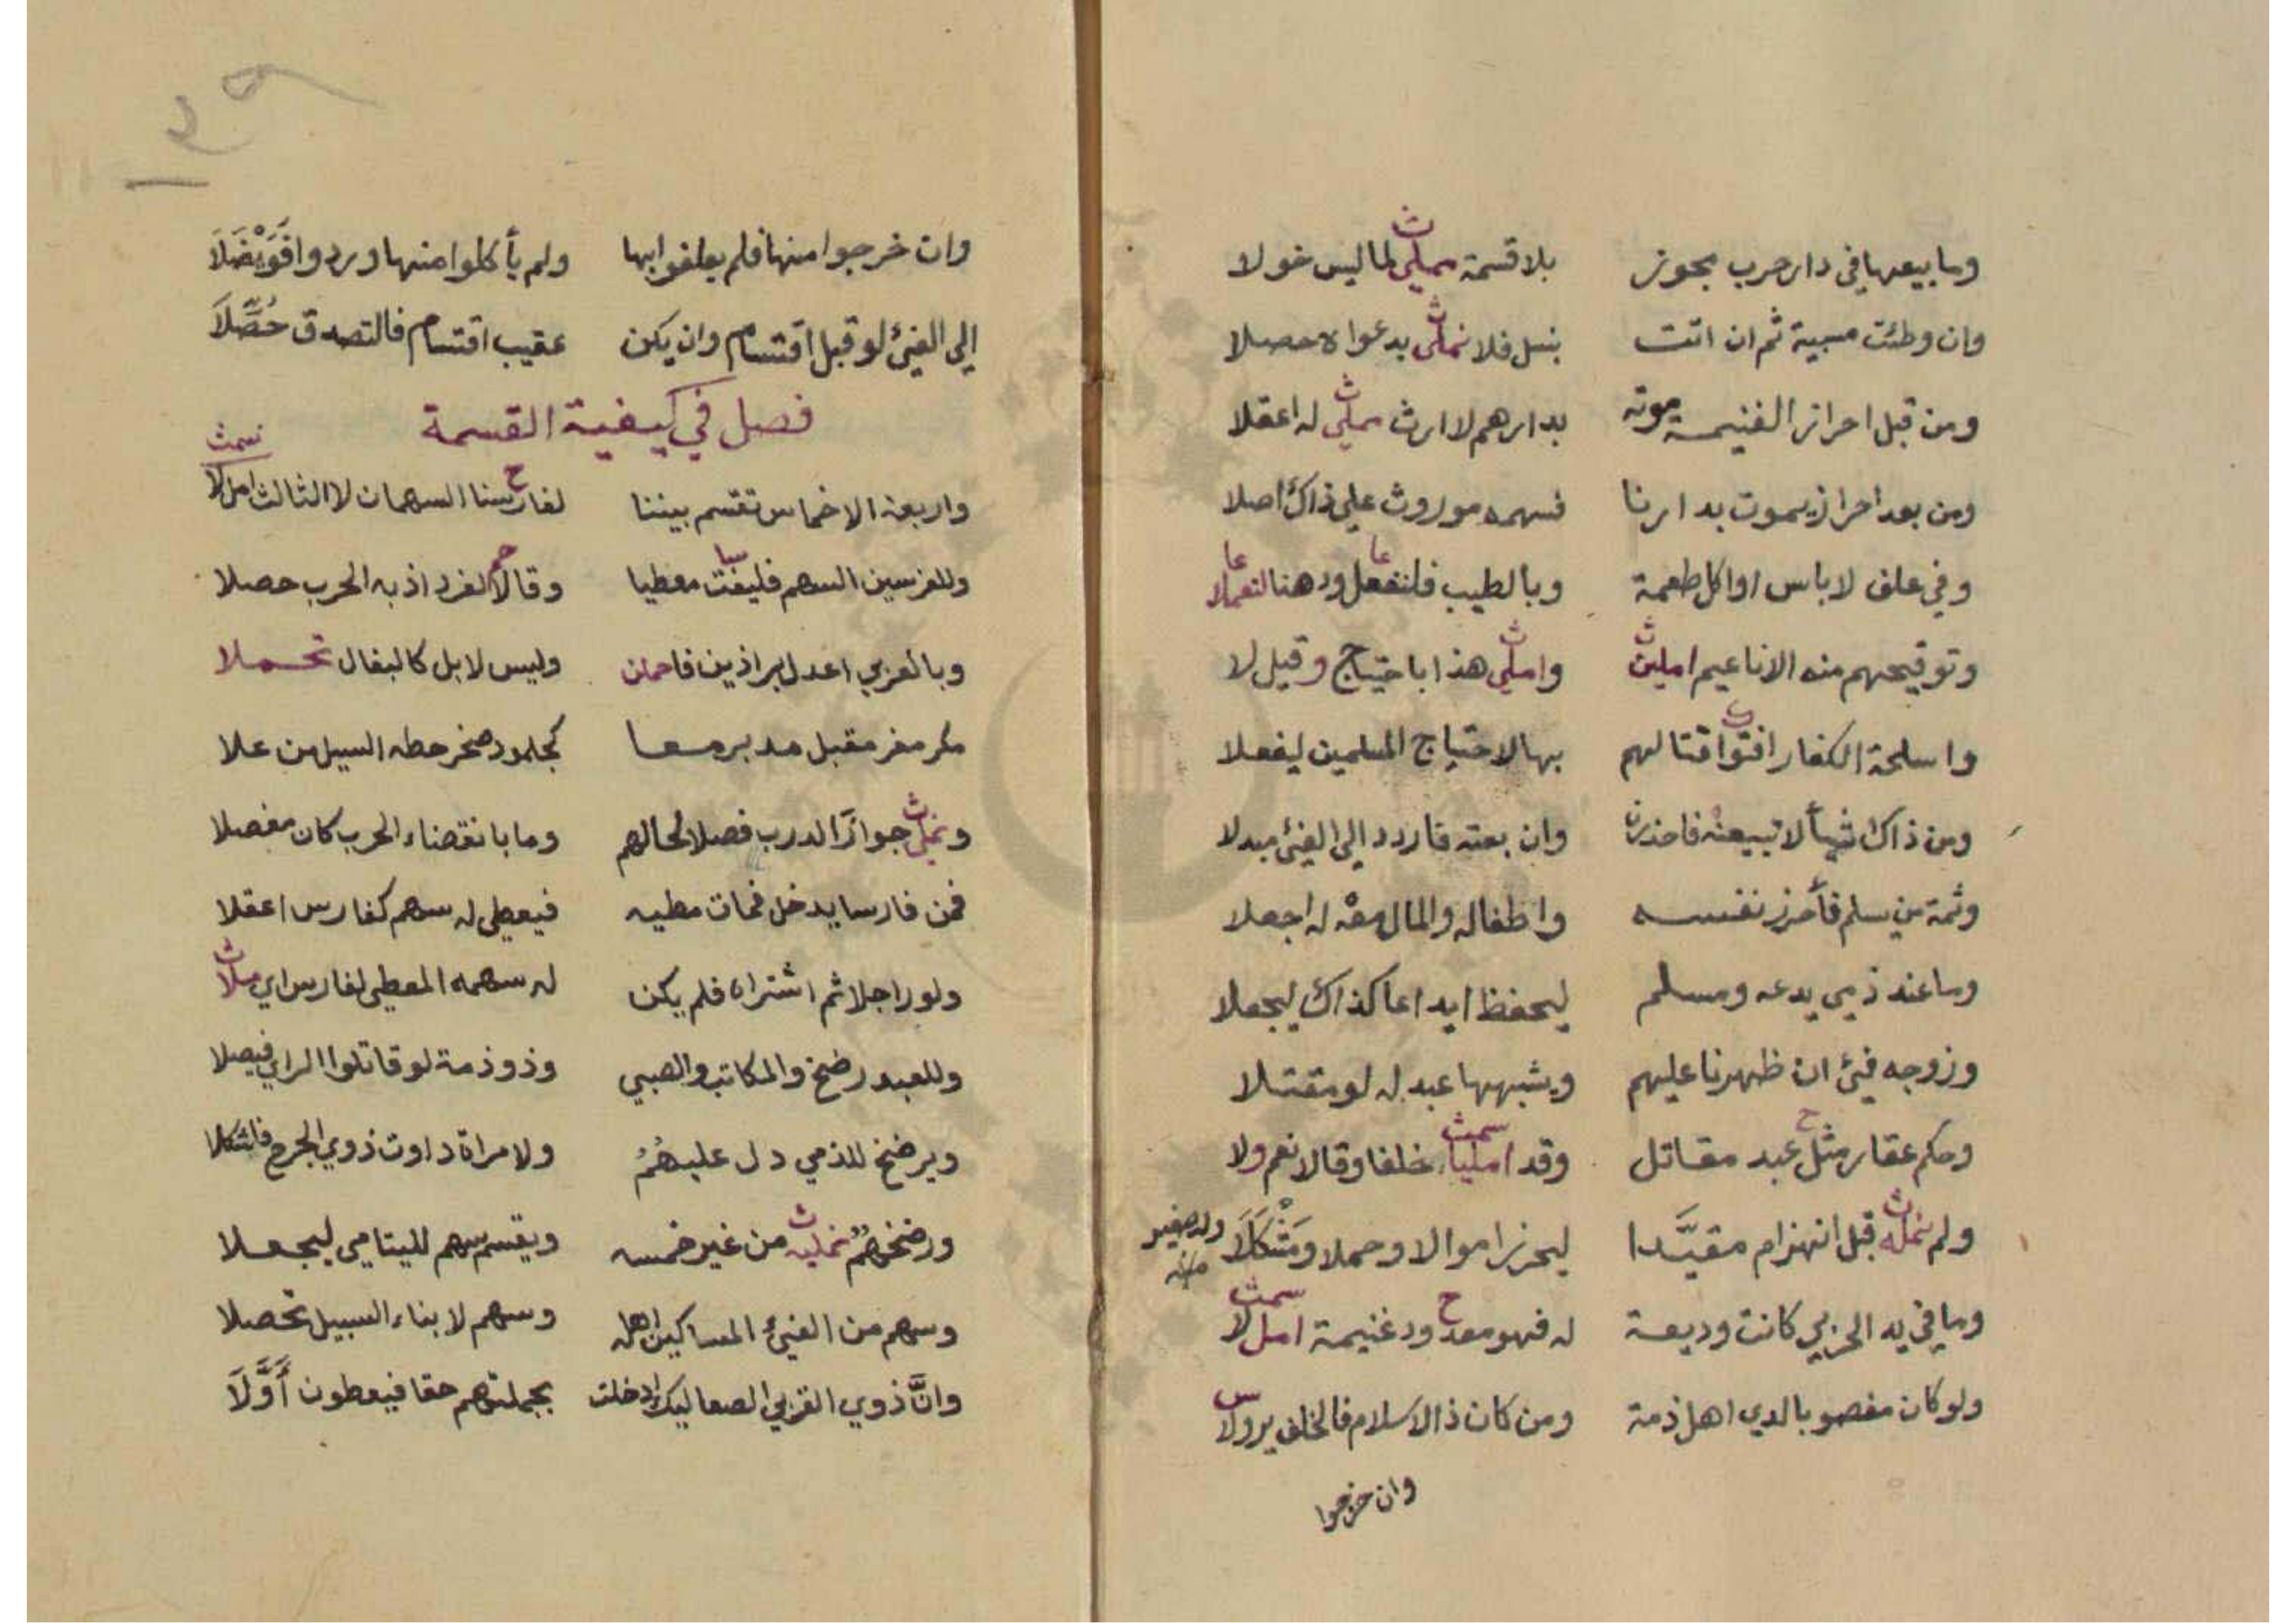 وما بيعها في دار حرب يجوز بلا قسمة لما ليس خولا
وان وطئت مسبية ثم ان اتت بنسل فلا نملى بدعواه حصلا
ومن قبل احراز الغنيمة موته بدارهم لا ارث يملى له اعقلا
ومن بعد احراز يموت بدارنا فسهمه موروث على ذاك اصلا
وفي علف لا باس او اكل طعمة وبالطيب فلنفعل ودهنا لنعملا
وتوقيحهم منه الاناعيم املين واملى هذا باحتياج وقيل لا
واسلحة الكفار افتوا قتالهم بها لاحتياج المسلمين ليفعلا
ومن ذاك شيأ لا تبيعنه فاحذرن وان بعته فاردد الى الفئ مبدلا
وثمة من يسلم فأحرز نفسه واطفاله والمال معْه له اجعلا
وما عند ذمي يدعه ومسلم ليحفظ ايداعا كذاك ليجعلا
وزوجه فئ ان ظهرنا عليهم ويشبهها عبد له لو مقتلا
وحكم عقار مثل عبد مقاتل وقد امليا خلفا وقالا نعم ولا
ولم نمله قبل انهزام مقيَّدا ليحرز اموالا وحملا ومَثْكَلَا
ولد صغير منه
وما في يد الحربي كانت وديعة له فهو معدود غنيمة امل لا
ولو كان مغصوبا لدى اهل ذمة ومن كان ذا الاسلام فالخلف يرولا
وان خرجوا
وان خرجوا منها فلم يعلفوا بها ولم يأكلوا منها وردوا فَوَيْضَلَا
إلى الفئ لو قبل اقتسام وان يكن عقيب اقتسام فالتصدق حُصِّلَا
فصل في كيفية القسمة
واربعة الاخماس تقسم بيننا لفارسنا السهمان لا الثالث امل لا
وللفرسين السهم فليفت معطيا وقالا لفرد اذ به الحرب حصلا
وبالعربي اعدل براذين فاحملن وليس لابل كالبغال تحملا
مكر مفر مقبل مدبر معا كجلمود صخر حطه السيل من علا
ونملى جواز الدرب فصلا لحالهم وما بانقضاء الحرب كان مفصلا
فمن فارسا يدخل فمات مطيه فيعطى له سهم كفارس اعقلا
ولو راجلا ثم اشتراه فلم يكن له سهمه المعطى لفارس اي ملا
وللعبد رضخ والمكاتب والصبي وذو ذمة لو قاتلوا الراي فيصلا
ويرضخ للذمي دل عليهمُ ولامراة داوت ذوي الجرح فاشكلا
ورضخهمُ نمليه من غير خمسه ويقسم سهم لليتامى ليجعلا
وسهم من الفئ المساكين اهله وسهم لابناء السبيل تحصلا
وانَّ ذوي القربى الصعاليك ادخلت بجملتهم حقا فيعطون أَوَّلَا